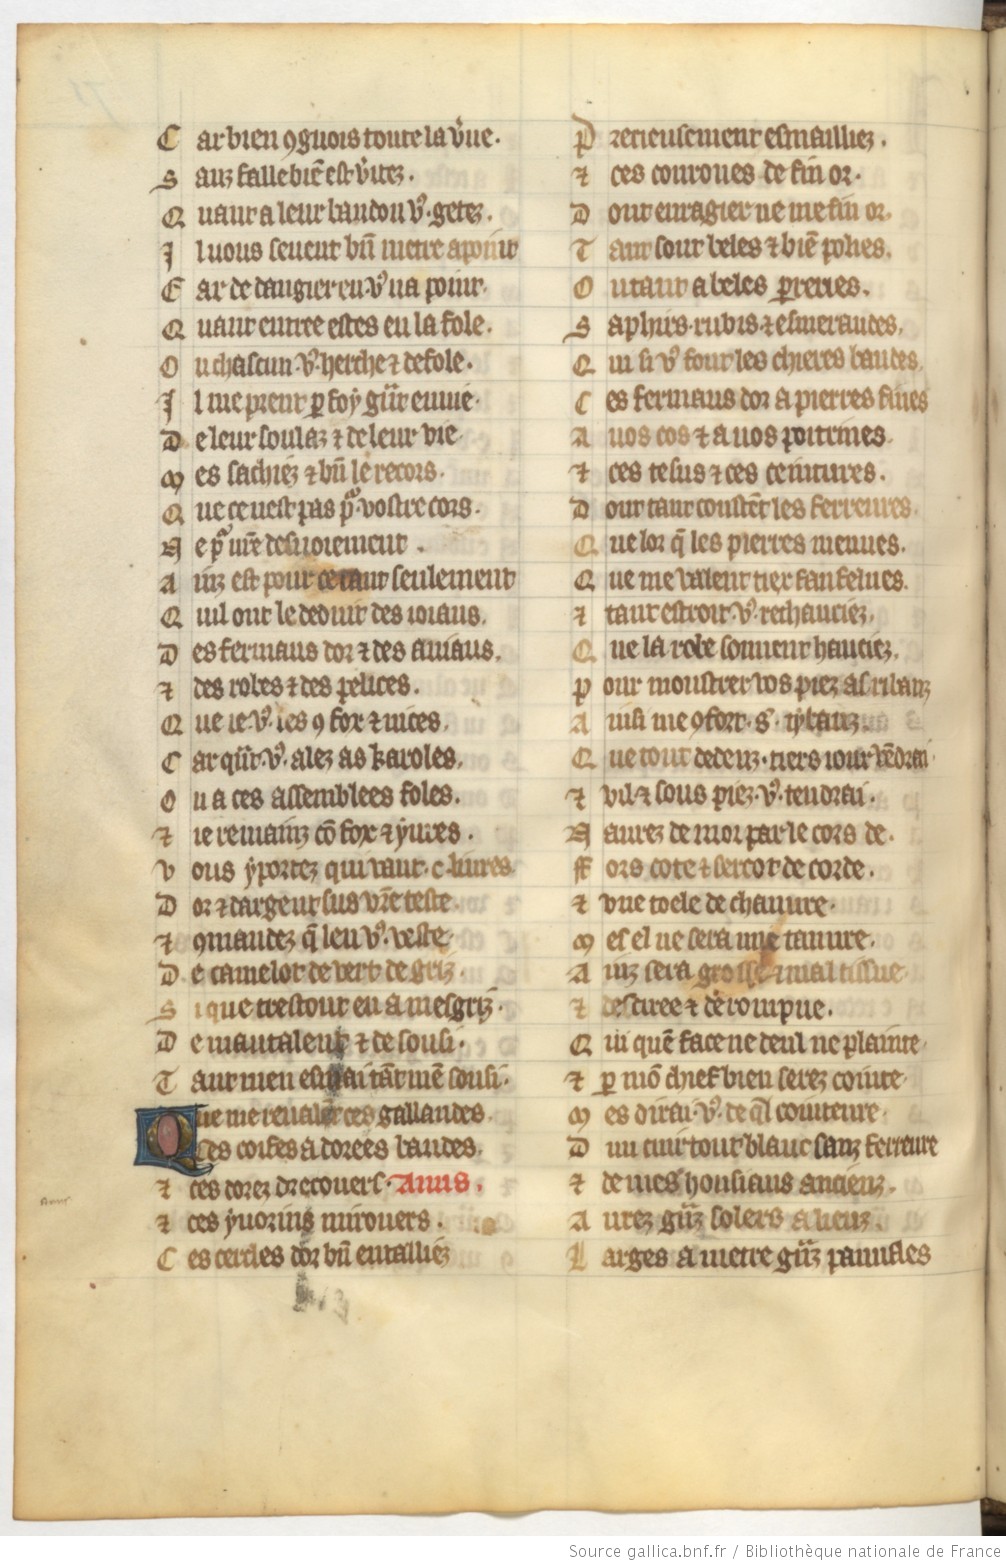 Car bien ꝯgnois toute la ṽue.
Sanz falle biē est ṽitez.
Quant a leur bandon v̾. getez.
Il uous seuent bn̄ metre a point
Car de dangier en v̾ na point.
Quant entree estes en la fole.
Ou chascun v̾. herche ⁊ defole.
Il me prent ꝑ foy gñt enuie.
De leur soulaz ⁊ de leur vie
Mes sachiez ⁊ bn̄ le recors.
Que ce nest pas pͬ. vostre cors.
Ne pͬ ur̄e desnoiement.
Ainz est pour ce tant seulement
Quil ont le deduit des ioiaus.
Des fermaus dor ⁊ des aniaus.
⁊ des robes ⁊ des pelices.
Que ie v̾. les ꝯ fox ⁊ nices.
Car qñt v̾. alez as karoles.
Ou a ces assemblees foles.
⁊ ie remainz cō fox ⁊ yures.
Vous y portez qui vaut .c. liures
Dor ⁊ dargent sus vr̄e teste.
⁊ ꝯmandez q̄ len v̾. veste
De camelot de vert de griz.
Si que trestout en amesgriz.
De mautalent ⁊ de sousi.
Tant men esmai tāt mē sousi.
Que me reualēt ces gallandes.
Ces coifes a dorees bandes.
⁊ ces dorez drecouers. Amis.
⁊ ces yuorins mirouers.
Ces cercles dor bn̄ entalliez
Precieusement esmailliez.
⁊ ces courones de fin or.
Dont enragier ne me fin or.
Tant sont beles ⁊ biē polies.
Ou tant a beles perreries.
Saphirs. rubis. ⁊ esmeraudes.
Qui si v̾ font les chieres baudes.
Ces fermaus dor a pierres fines
A uos cos ⁊ a uos poitrines.
⁊ ces tesus ⁊ ces ceintures.
Dont tant constēt les ferreures.
Que lor q̄ les pierres menues.
Que me valent tiex fanfelues.
⁊ tant estroit v̾. rechauciez.
Que la robe souuent hauciez.
Pour moustrer vos piez as ribauz
Ainsi me ꝯfort .s̾. tybauz.
Que tout dedenz tiers iour vēdrai
⁊ vil ⁊ sous piez. v̾. tendrai.
Naurez de moi par le cors de.
Fors cote ⁊ sercot de corde.
⁊ vne toele de chanure.
Mes el ne sera mie tanure.
Ainz sera grosse ⁊ mal tissue
⁊ desciree ⁊ derompue.
Qui quē face ne deul ne plainte
⁊ ꝑ mō chief bien serez cointe.
Mes dirai. v̾. de ql̄ cointeure.
Dun cuir tout blanc sanz ferreure
⁊ de mes housiaus ancienz.
Aurez gñz solers a lienz.
Larges a metre gñz panufles